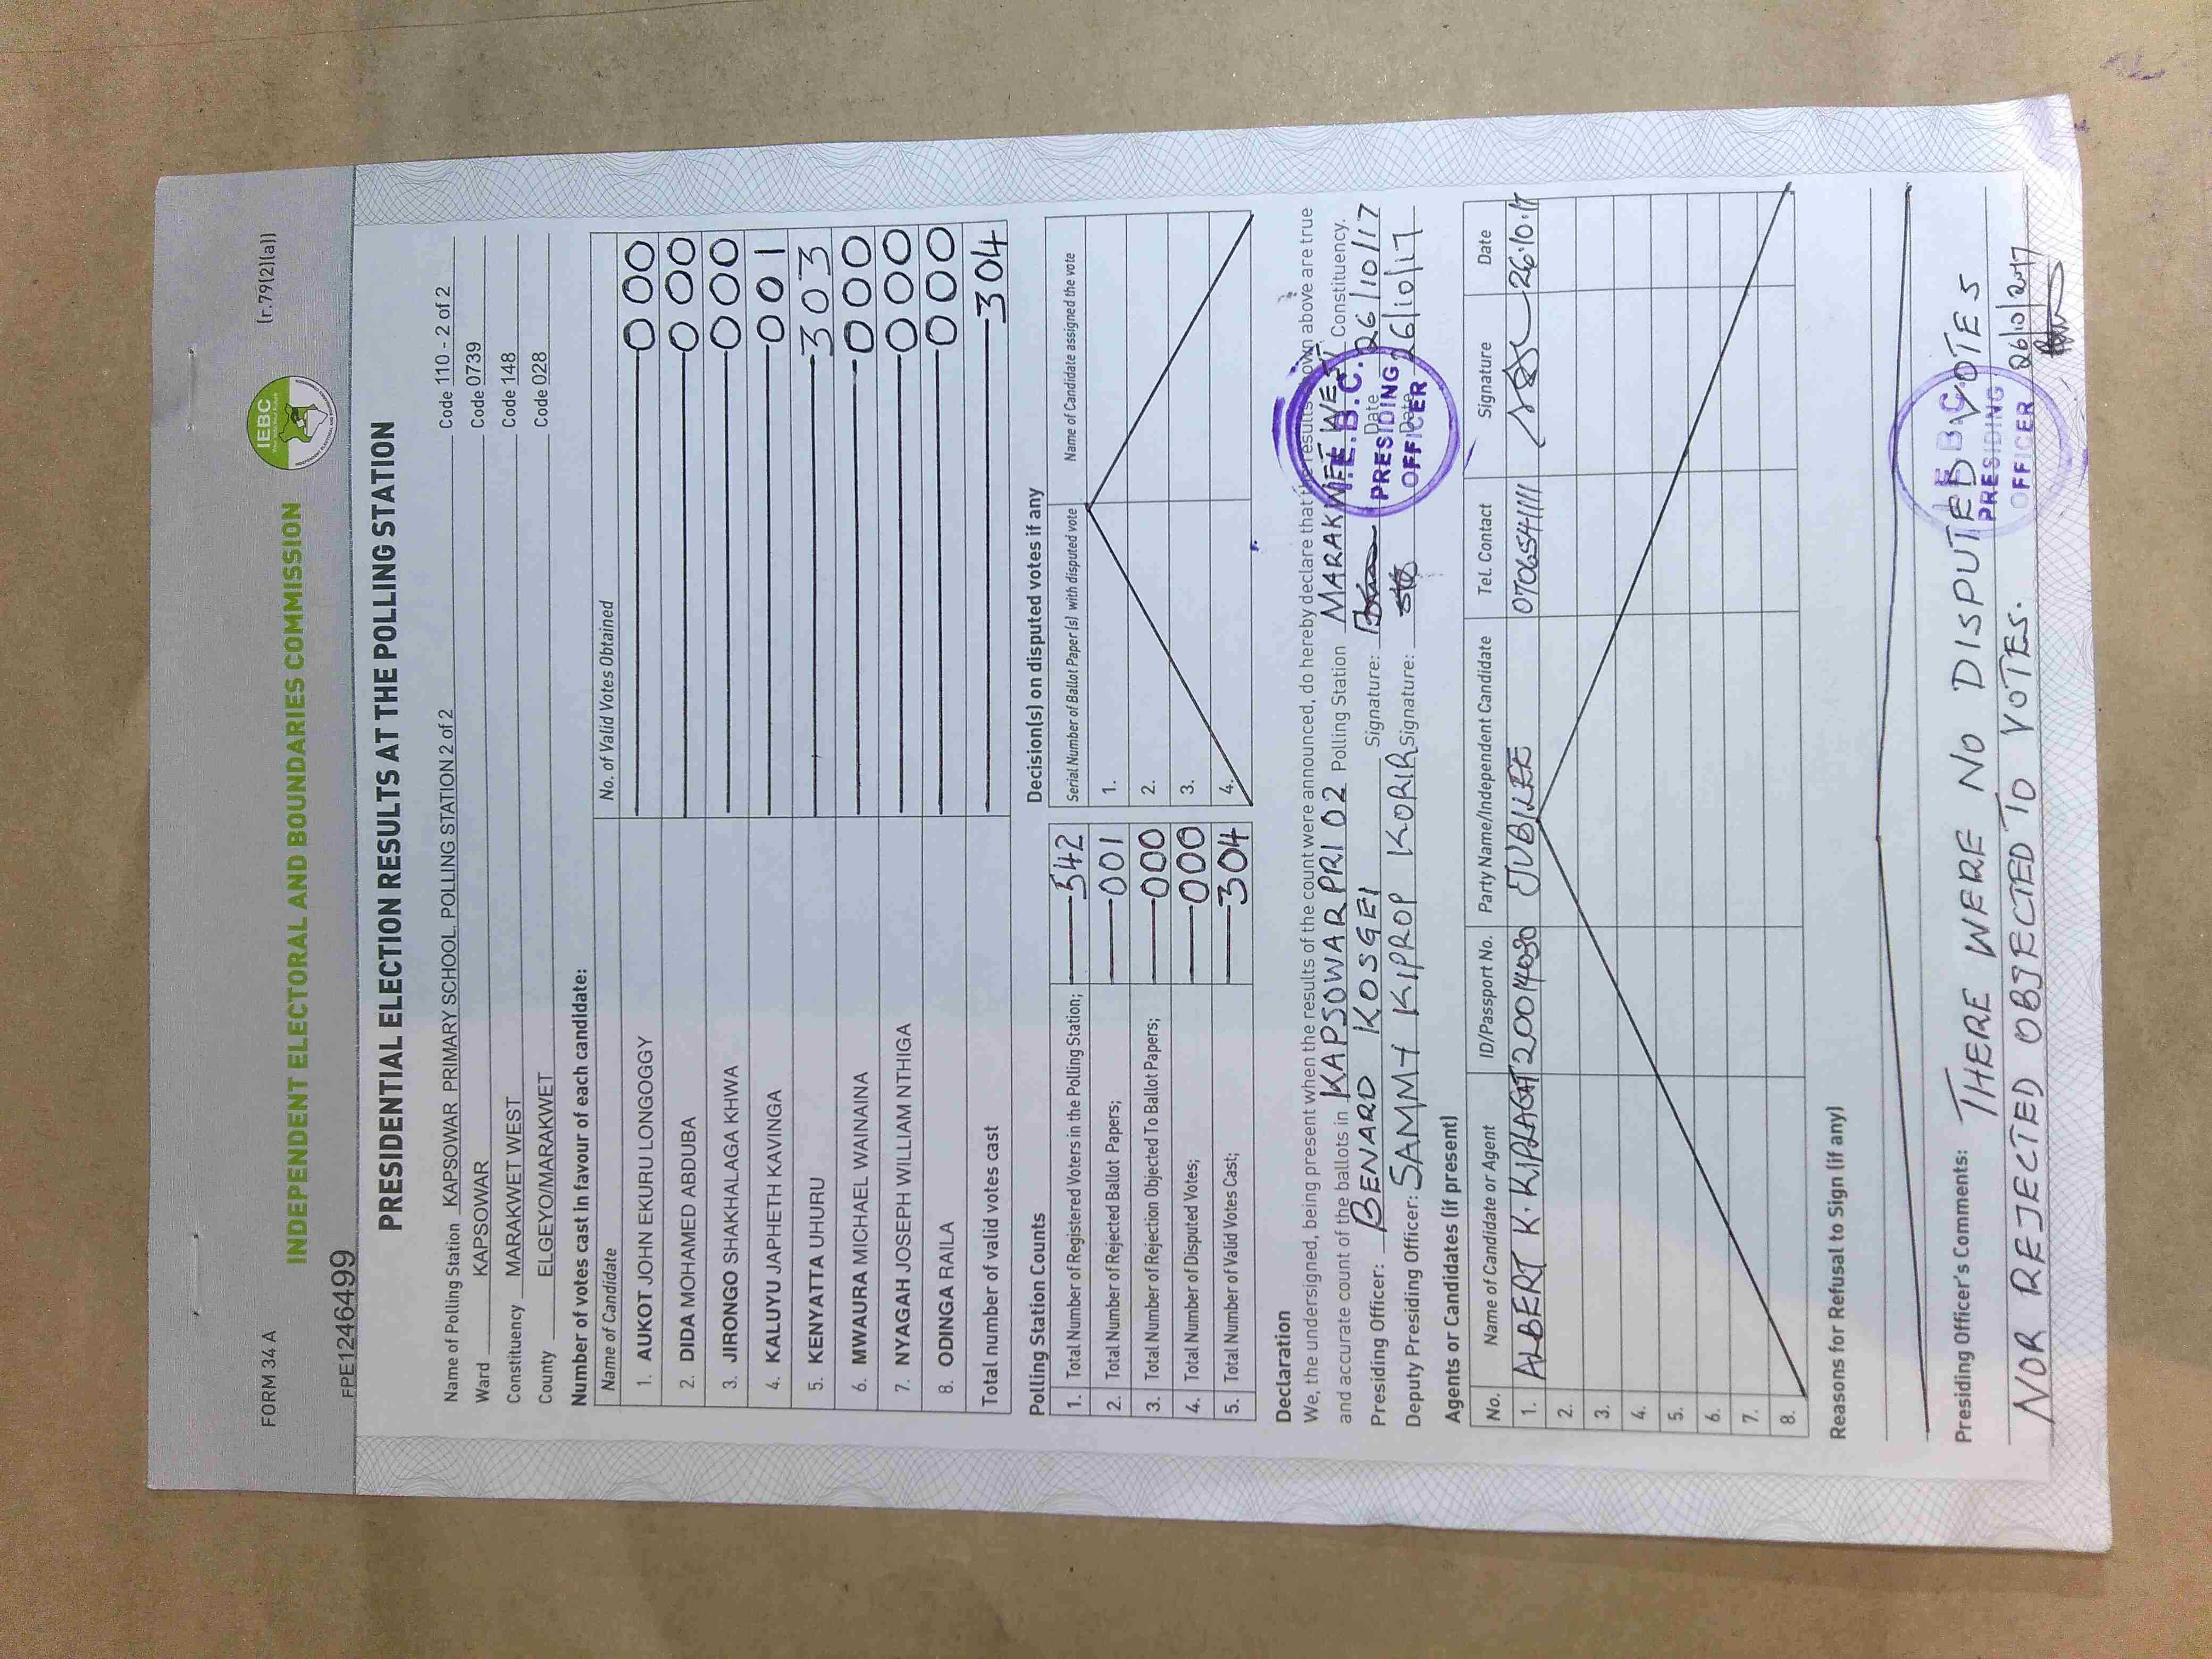 FORM 34 A
(r.79(2)(a))
IEBC
INDEPENDENT ELECTORAL AND BOUNDARIES COMMISSION
FPE1246499
PRESIDENTIAL ELECTION RESULTS AT THE POLLING STATION
Name of Polling Station KAPSOWAR PRIMARY SCHOOL, POLLING STATION 2 of 2 Code 110 - 2 of 2
Ward KAPSOWAR Code 0739
Constituency MARAKWET WEST Code 148
County ELGEYO/MARAKWET Code 028
Number of votes cast in favour of each candidate:
Name of Candidate No. of Valid Votes Obtained
1. AUKOT JOHN EKURU LONGOGGY 000
2. DIDA MOHAMED ABDUBA 000
3. JIRONGO SHAKHALAGA KHWA 000
4. KALUYU JAPHETH KAVINGA 001
5. KENYATTA UHURU 303
6. MWAURA MICHAEL WAINAINA 000
7. NYAGAH JOSEPH WILLIAM NTHIGA 000
8. ODINGA RAILA 000
Total number of valid votes cast 304
Polling Station Counts
1. Total Number of Registered Voters in the Polling Station; 542
2. Total Number of Rejected Ballot Papers; 001
3. Total Number of Rejection Objected To Ballot Papers; 000
4. Total Number of Disputed Votes; 000
5. Total Number of Valid Votes Cast; 304
Decision(s) on disputed votes if any
Serial Number of Ballot Paper (s) with disputed vote Name of Candidate assigned the vote
1.
2.
3.
4.
Declaration
We, the undersigned, being present when the results of the count were announced, do hereby declare that the results shown above are true
and accurate count of the ballots in KAPSOWAR PRI 02 Polling Station MARAKWET WEST Constituency.
Presiding Officer: BENARD KOSGEI Signature: Date 26/10/17
Deputy Presiding Officer: SAMMY KIPROP KORIR Signature: Date 26/10/17
I.E.B.C.
PRESIDING
OFFICER
Agents or Candidates (if present)
No. Name of Candidate or Agent ID/Passport No. Party Name/Independent Candidate Tel. Contact Signature Date
1. ALBERT K. KIPLAGAT 20014030 JUBILEE 0706541111 26.10.17
2.
3.
4.
5.
6.
7.
8.
Reasons for Refusal to Sign (if any)
Presiding Officer's Comments: THERE WERE NO DISPUTED VOTES
NOR REJECTED OBJECTED TO VOTES. 26/10/2017
PRESIDING
OFFICER